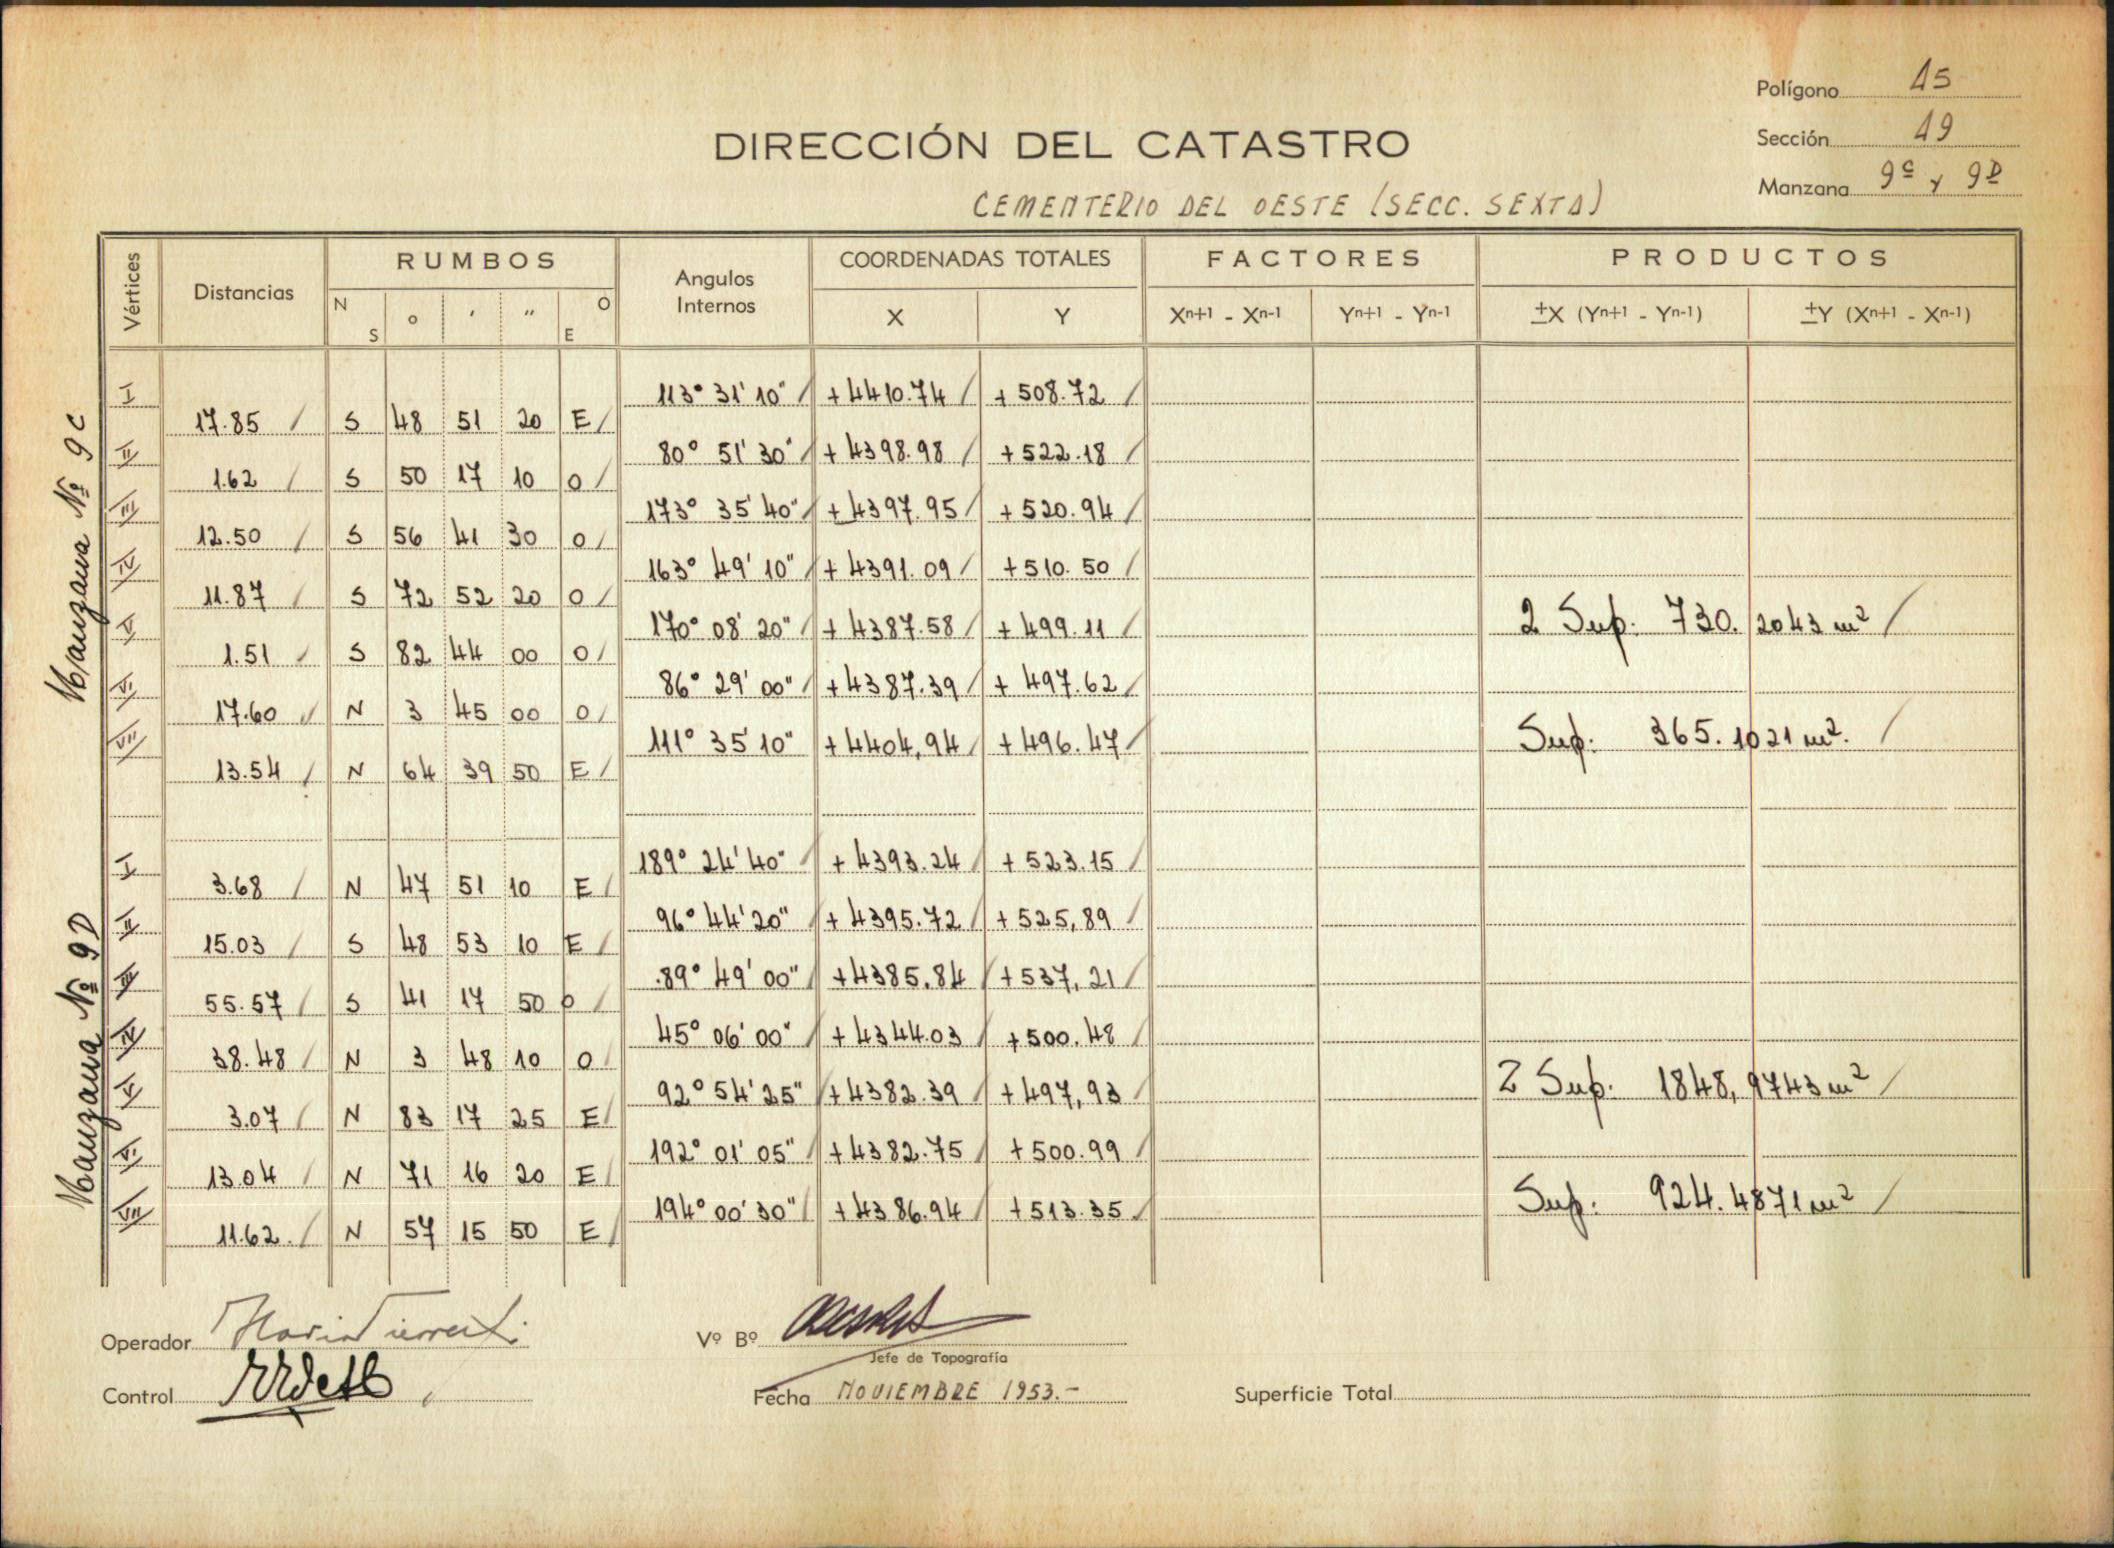 Polígono 15
Sección 19
Manzana 9C y 9D
DIRECCIÓN DEL CATASTRO
CEMENTERIO DEL OESTE (SECC. SEXTA)
Vértices Distancias RUMBOS Angulos Internos COORDENADAS TOTALES FACTORES PRODUCTOS
N S ° ' " O E X Y Xn+1 - Xn-1 Yn+1 - Yn-1 ±X (Yn+1 - Yn-1) ±Y (Xn+1 - Xn-1)
Manzana Nº 9C
I 113° 31' 10" +4410.74 +508.72
17.85 S 48 51 20 E
II 80° 51' 30" +4398.98 +522.18
1.62 S 50 17 10 O
III 173° 35' 40" +4397.95 +520.94
12.50 S 56 41 30 O
IV 163° 49' 10" +4391.09 +510.50
11.87 S 72 52 20 O
V 170° 08' 20" +4387.58 +499.11 2 Sup. 730.2043 m²
1.51 S 82 44 00 O
VI 86° 29' 00" +4387.39 +497.62
17.60 N 3 45 00 O
VII 111° 35' 10" +4404,94 +496.47 Sup: 365.1021 m².
13.54 N 64 39 50 E
Manzana Nº 9D
I 189° 24' 40" +4393.24 +523.15
3.68 N 47 51 10 E
II 96° 44' 20" +4395.72 +525,89
15.03 S 48 53 10 E
III 89° 49' 00" +4385.84 +537,21
55.57 S 41 17 50 O
IV 45° 06' 00" +4344.03 +500.48
38.48 N 3 48 10 O
V 92° 54' 25" +4382.39 +497,93 2 Sup: 1848,9743 m²
3.07 N 83 17 25 E
VI 192° 01' 05" +4382.75 +500.99
13.04 N 71 16 20 E
VII 194° 00' 30" +4386.94 +513.35 Sup: 924.4871 m²
11.62 N 57 15 50 E
Operador
Vº Bº
Jefe de Topografía
Control
Fecha NOVIEMBRE 1953.-
Superficie Total